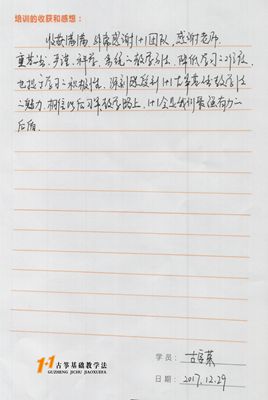 培训的收获和感想:
收获满满,非常感谢1+1团队,感谢老师.
严谨、科学、系统的教学方法,降低学习的难度,
也提高学习的积极性.深刻感受到1+1古筝基础教学法
的魅力.相信以后的筝教学路上,1+1会是我们最强有力的
后盾.
1+1 古筝基础教学法
GUZHENG JICHU JIAOXUEFA
学员:
日期: 2017.12.29